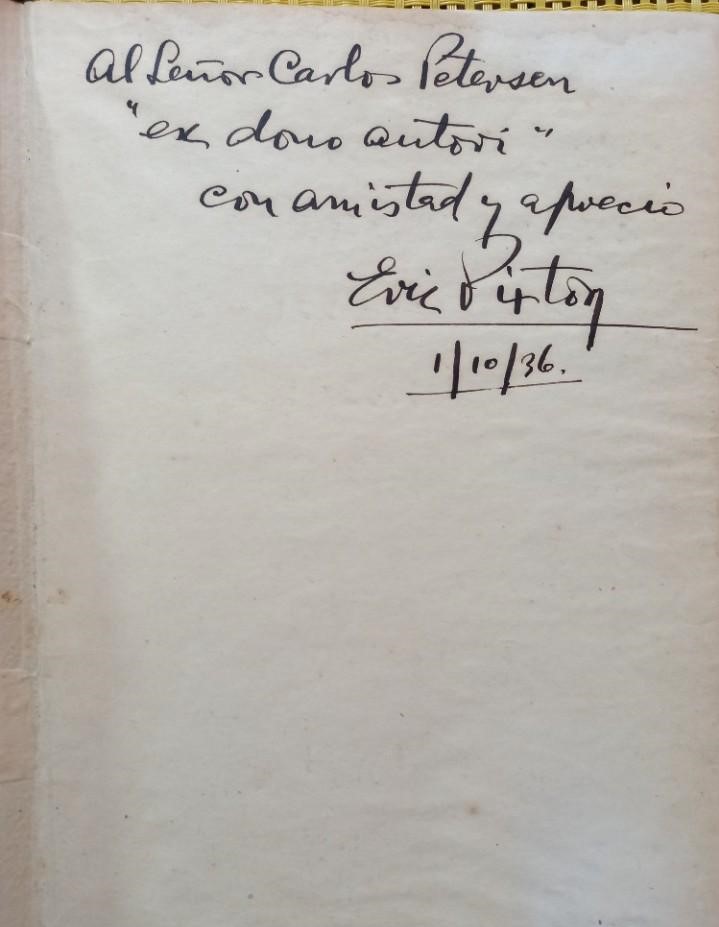 Al Señor Carlos Petersen
"ex dono autori"
con amistad y aprecio
Eric Pixton
1/10/36.